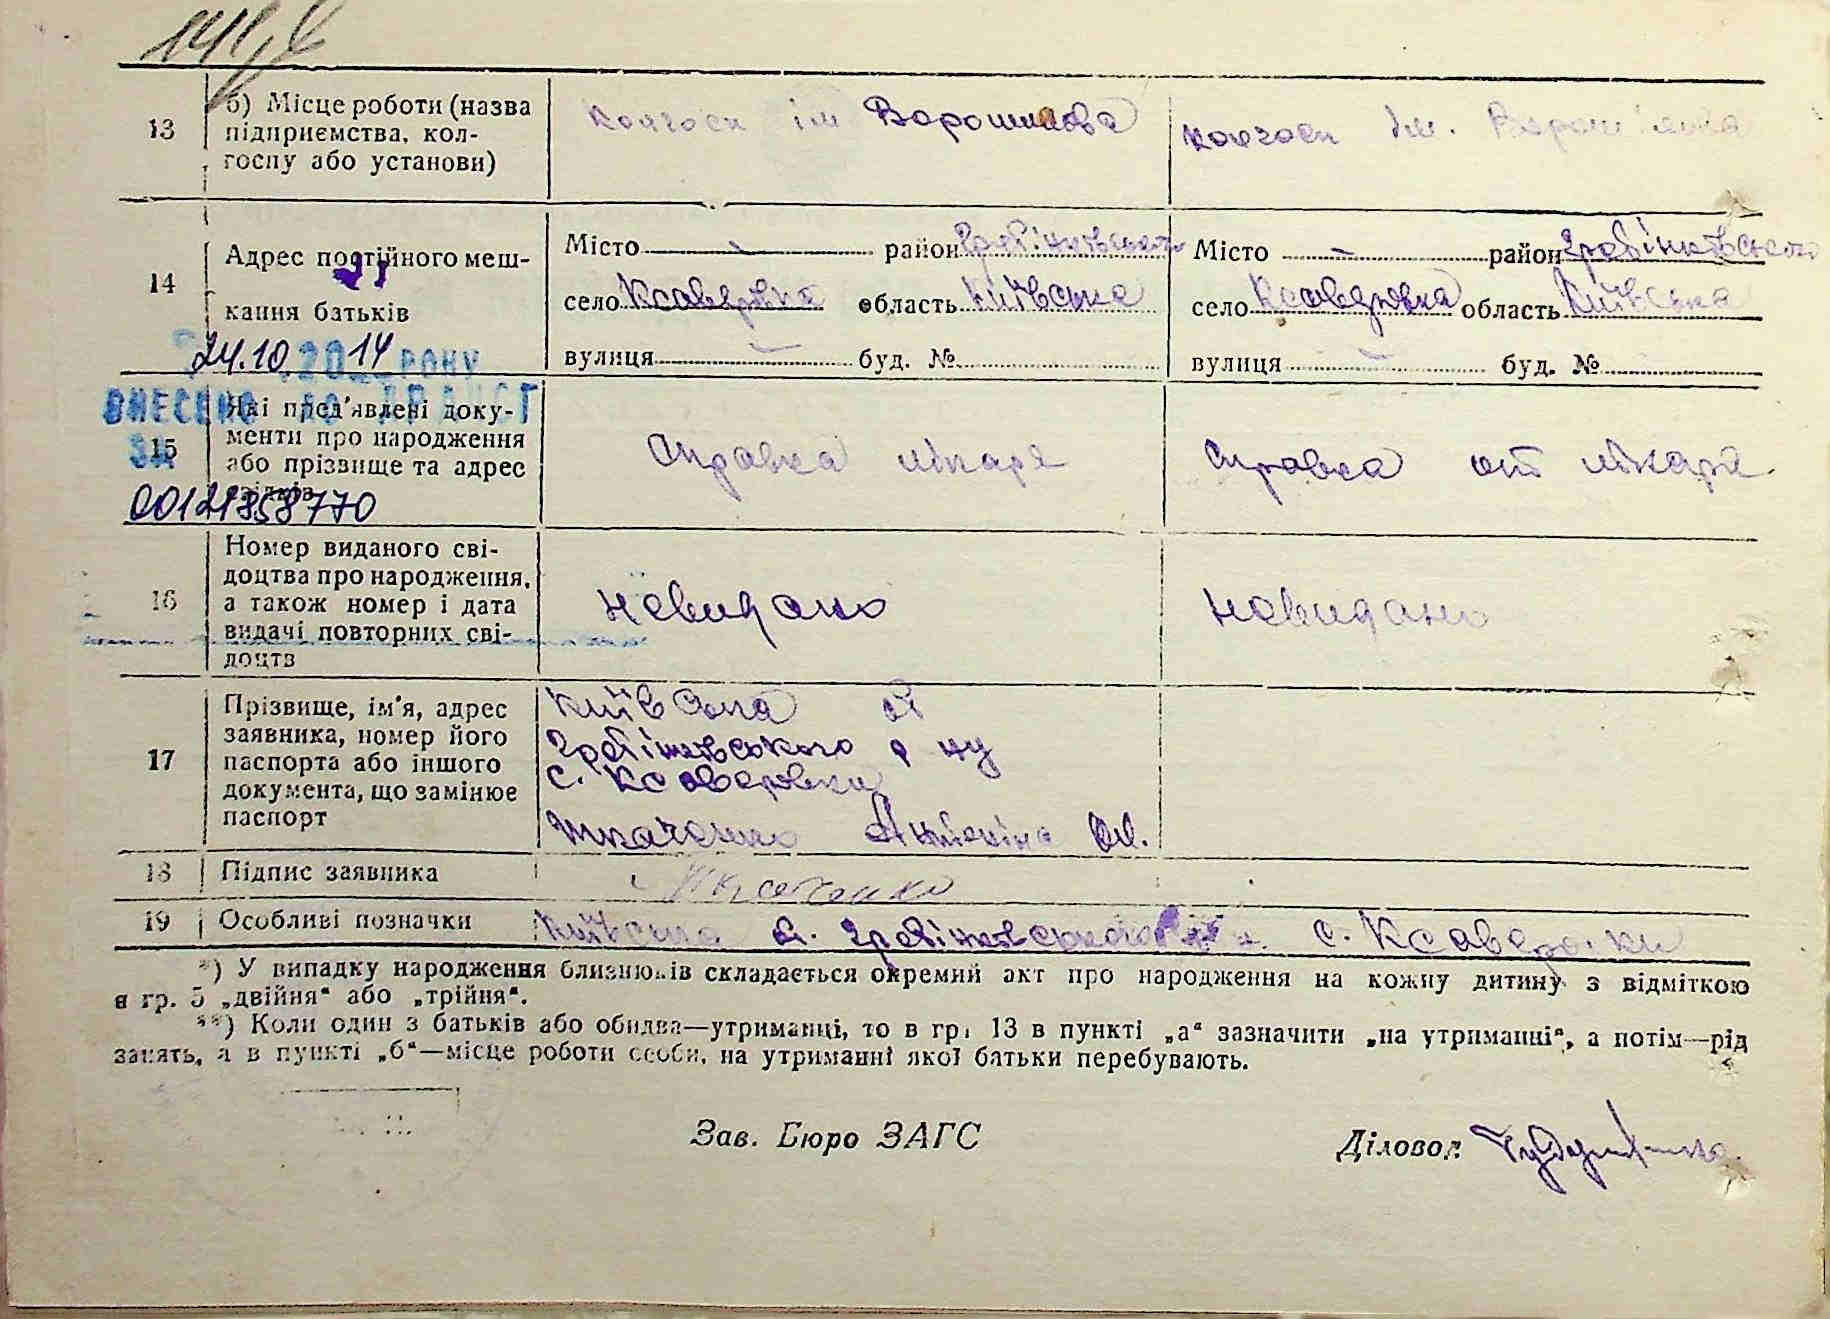 13
б) Місце роботи (назва
підприємства, кол-
госпу або установи)
колгосп ім Ворошилова
колгосп ім. Ворошилова
14
Адрес постійного меш-
кання батьків
Місто район Гребінківського
село Ксаверівка область Київська
вулиця буд. №
Місто район Гребінківського
село Ксаверовка область Київська
вулиця буд. №
24.10.2014 РОКУ
ВНЕСЕНО ДО ДРАЦСГ
ЗА
00121858770
15
Які пред'явлені доку-
менти про народження
або прізвище та адрес
свідків
Справка лікаря
Справка от лікаря
16
Номер виданого сві-
доцтва про народження,
а також номер і дата
видачі повторних сві-
доцтв
Невидано
Невидано
17
Прізвище, ім'я, адрес
заявника, номер його
паспорта або іншого
документа, що замінює
паспорт
Київська
Гребінківського р ну
с. Ксаверовки
Ткаченко
18
Підпис заявника
Ткаченко
19
Особливі позначки
Київська Гребінківського с. Ксаверовки
*) У випадку народження близнюків складається окремий акт про народження на кожну дитину з відміткою
в гр. 5 „двійня“ або „трійня“.
**) Коли один з батьків або обидва—утриманці, то в грі 13 в пункті „а“ зазначити „на утриманні“, а потім—рід
занять, а в пункті „б“—місце роботи особи, на утриманні якої батьки перебувають.
Зав. Бюро ЗАГС
Діловод